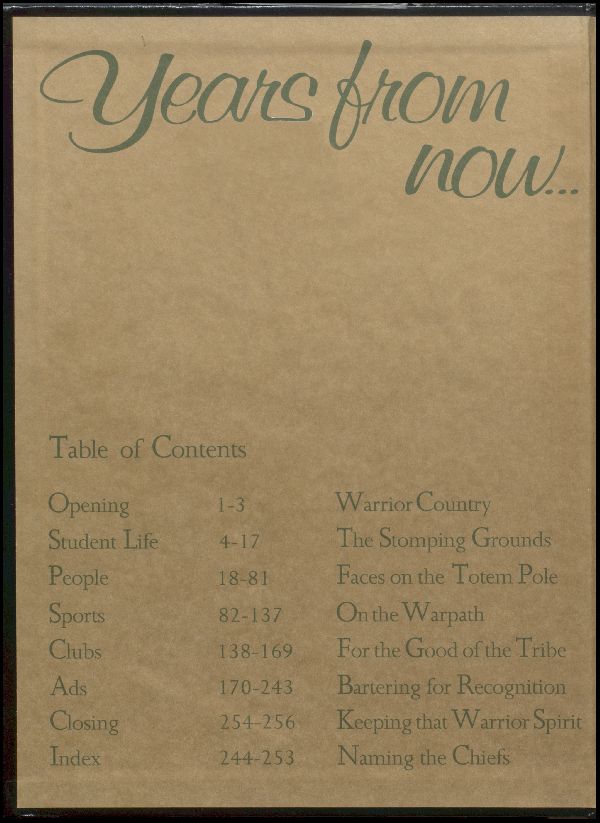 Years from
now...
Table of Contents
Opening 1-3 Warrior Country
Student Life 4-17 The Stomping Grounds
People 18-81 Faces on the Totem Pole
Sports 82-137 On the Warpath
Clubs 138-169 For the Good of the Tribe
Ads 170-243 Bartering for Recognition
Closing 254-256 Keeping that Warrior Spirit
Index 244-253 Naming the Chiefs